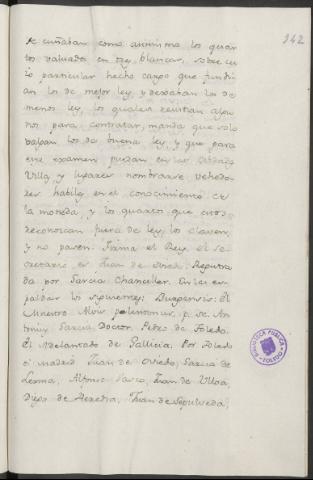 242
se cuñaban como asimismo los quar
tos valuados en tres blancas, sobre cu
io particular hecho cargo que fundi
an los de mejor ley, y dexaban los de
menos ley, los quales resultan algu
nos para contratar, manda que solo
valgan los de buena ley, y que para
ese examen puedan en las
Villas y lugares nombrarse vehedo
res habiles en el conocimiento de
la moneda, y los quartos que
reconozcan fuera de ley, los claven,
y no pasen. Firma el Rey. el se
cretario es Juan de Oviedo. Registra
da por Garcia Chanciller. En las es
paldas los siguientes: El
Maestro Alvir p. de An
tonius Garcia Doctor. Petrus de Toledo.
El Adelantado de Gallicia. Por Toledo
ó Madrid Juan de Oviedo, Garcia de
Lerma, Alfonso Juan de Ulloa,
Diego de Heredia, Juan de Sepulveda,
BIBLIOTECA PUBLICA
TOLEDO